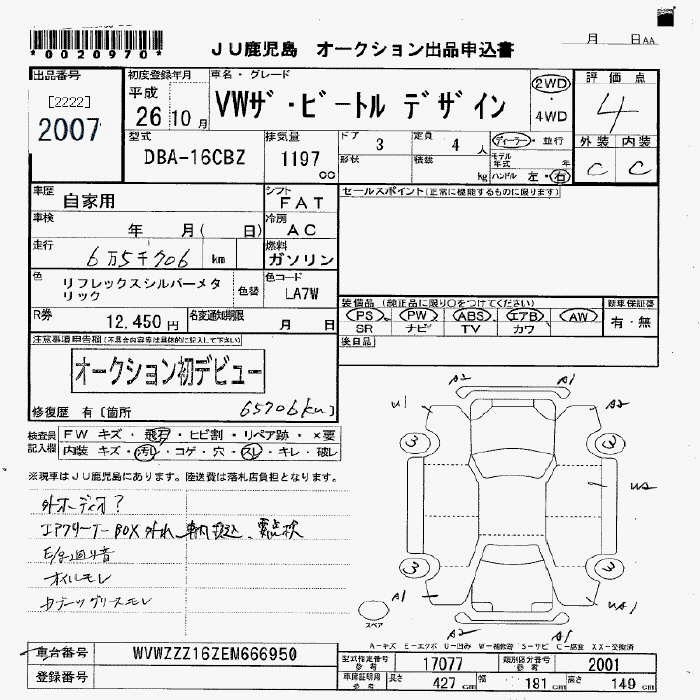 *0020970*
JU鹿児島 オークション出品申込書
月 日AA
出品番号
[2222]
2007
初度登録年月
平成
26 10 月
車名・グレード
VWザ・ビートル デザイン
2WD
・
4WD
評価点
4
外装 内装
C C
型式
DBA-16CBZ
排気量
1197
cc
ドア 3
形状
定員 4 人
積載 kg
ディーラー・並行
モデル年式 年
ハンドル 左・右
車歴
自家用
シフト
FAT
セールスポイント(正常に機能するものに限ります)
車検
年 月( 日)
冷房
AC
走行
6万5千706 km
燃料
ガソリン
色
リフレックスシルバーメタ
リック
色替
色コード
LA7W
R券
12,450円
名変通知期限
月 日
装備品 (純正品に限り○をつけてください)
PS PW ABS エアB AW
SR ナビ TV カワ
新車保証書
有・無
後日品
注意事項申告欄(不具合内容等は具体的に記入して下さい)
オークション初デビュー
修復歴 有〔箇所
65706km〕
検査員
記入欄
FW キズ・飛石・ヒビ割・リペア跡・×要
内装 キズ・汚レ・コゲ・穴・スレ・キレ・破レ
※現車はJU鹿児島にあります。陸送費は落札店負担となります。
外オーディオ?
エアクリーナーBOX外れ 車内
異音
オイルモレ
グリスモレ
A2 A1
U1 A2
3 3
U2
3 3
A1 UA1
A2 A1
スペア
A-キズ E-エクボ U-凹み W-補修跡 S-サビ C-腐食 XX-交換済
車台番号
WVWZZZ16ZEM666950
登録番号
型式指定番号
参考
17077
類別区分番号
参考
2001
車庫証明用
参考
長さ 427cm 幅 181cm 高さ 149cm